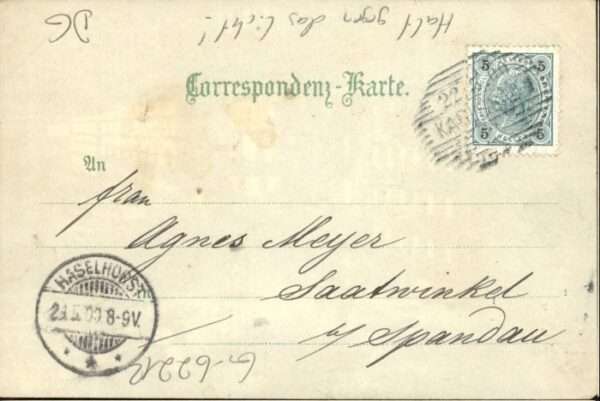 Halt gegen das Licht!
DG
Correspondenz-Karte.
5 5
5 5
An
Frau
Agnes Meyer
Saatwinkel
b/ Spandau
HASELHORST
8-9V.
G-6221